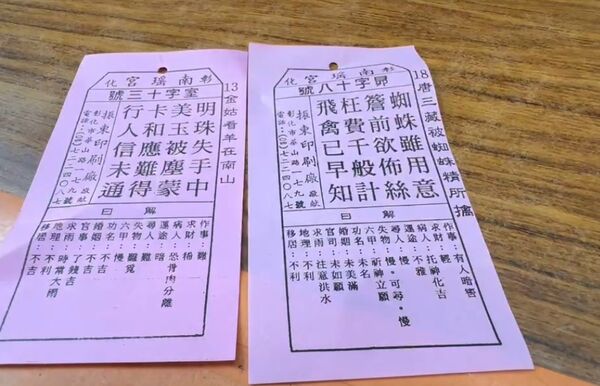 13金姑看羊在南山
彰南瑤宮化
室字十三號
明珠失手中
美玉被塵蒙
卡和應難得
行人信未通
振東印刷廠 敬献
彰化市華山路一七九號
電話:(04)七二二四〇八七
解曰
作事:難
求財:稀
病人:恐骨肉分離
運途:暗
尋人:難
失物:難覓
六甲:慢
功名:
婚姻:不吉
官事:了錢吉
求雨:時常大雨
地理:不利
移居:不吉
18唐三藏被蜘蛛精所擒
彰南瑤宮化
昴字十八號
蜘蛛雖用意
簷前欲佈絲
枉費千般計
飛禽已早知
振東印刷廠 敬献
彰化市華山路一七九號
電話:(04)七二二四〇八七
解曰
作事:輕 有人暗害
求財:托神化吉
病人:不雅
運途:慢
尋人:慢。可尋。慢
失物:慢
六甲:祈神立願
功名:未名
婚姻:未美滿
官司:未如願
求雨:注意洪水
地理:不利
移居:不利